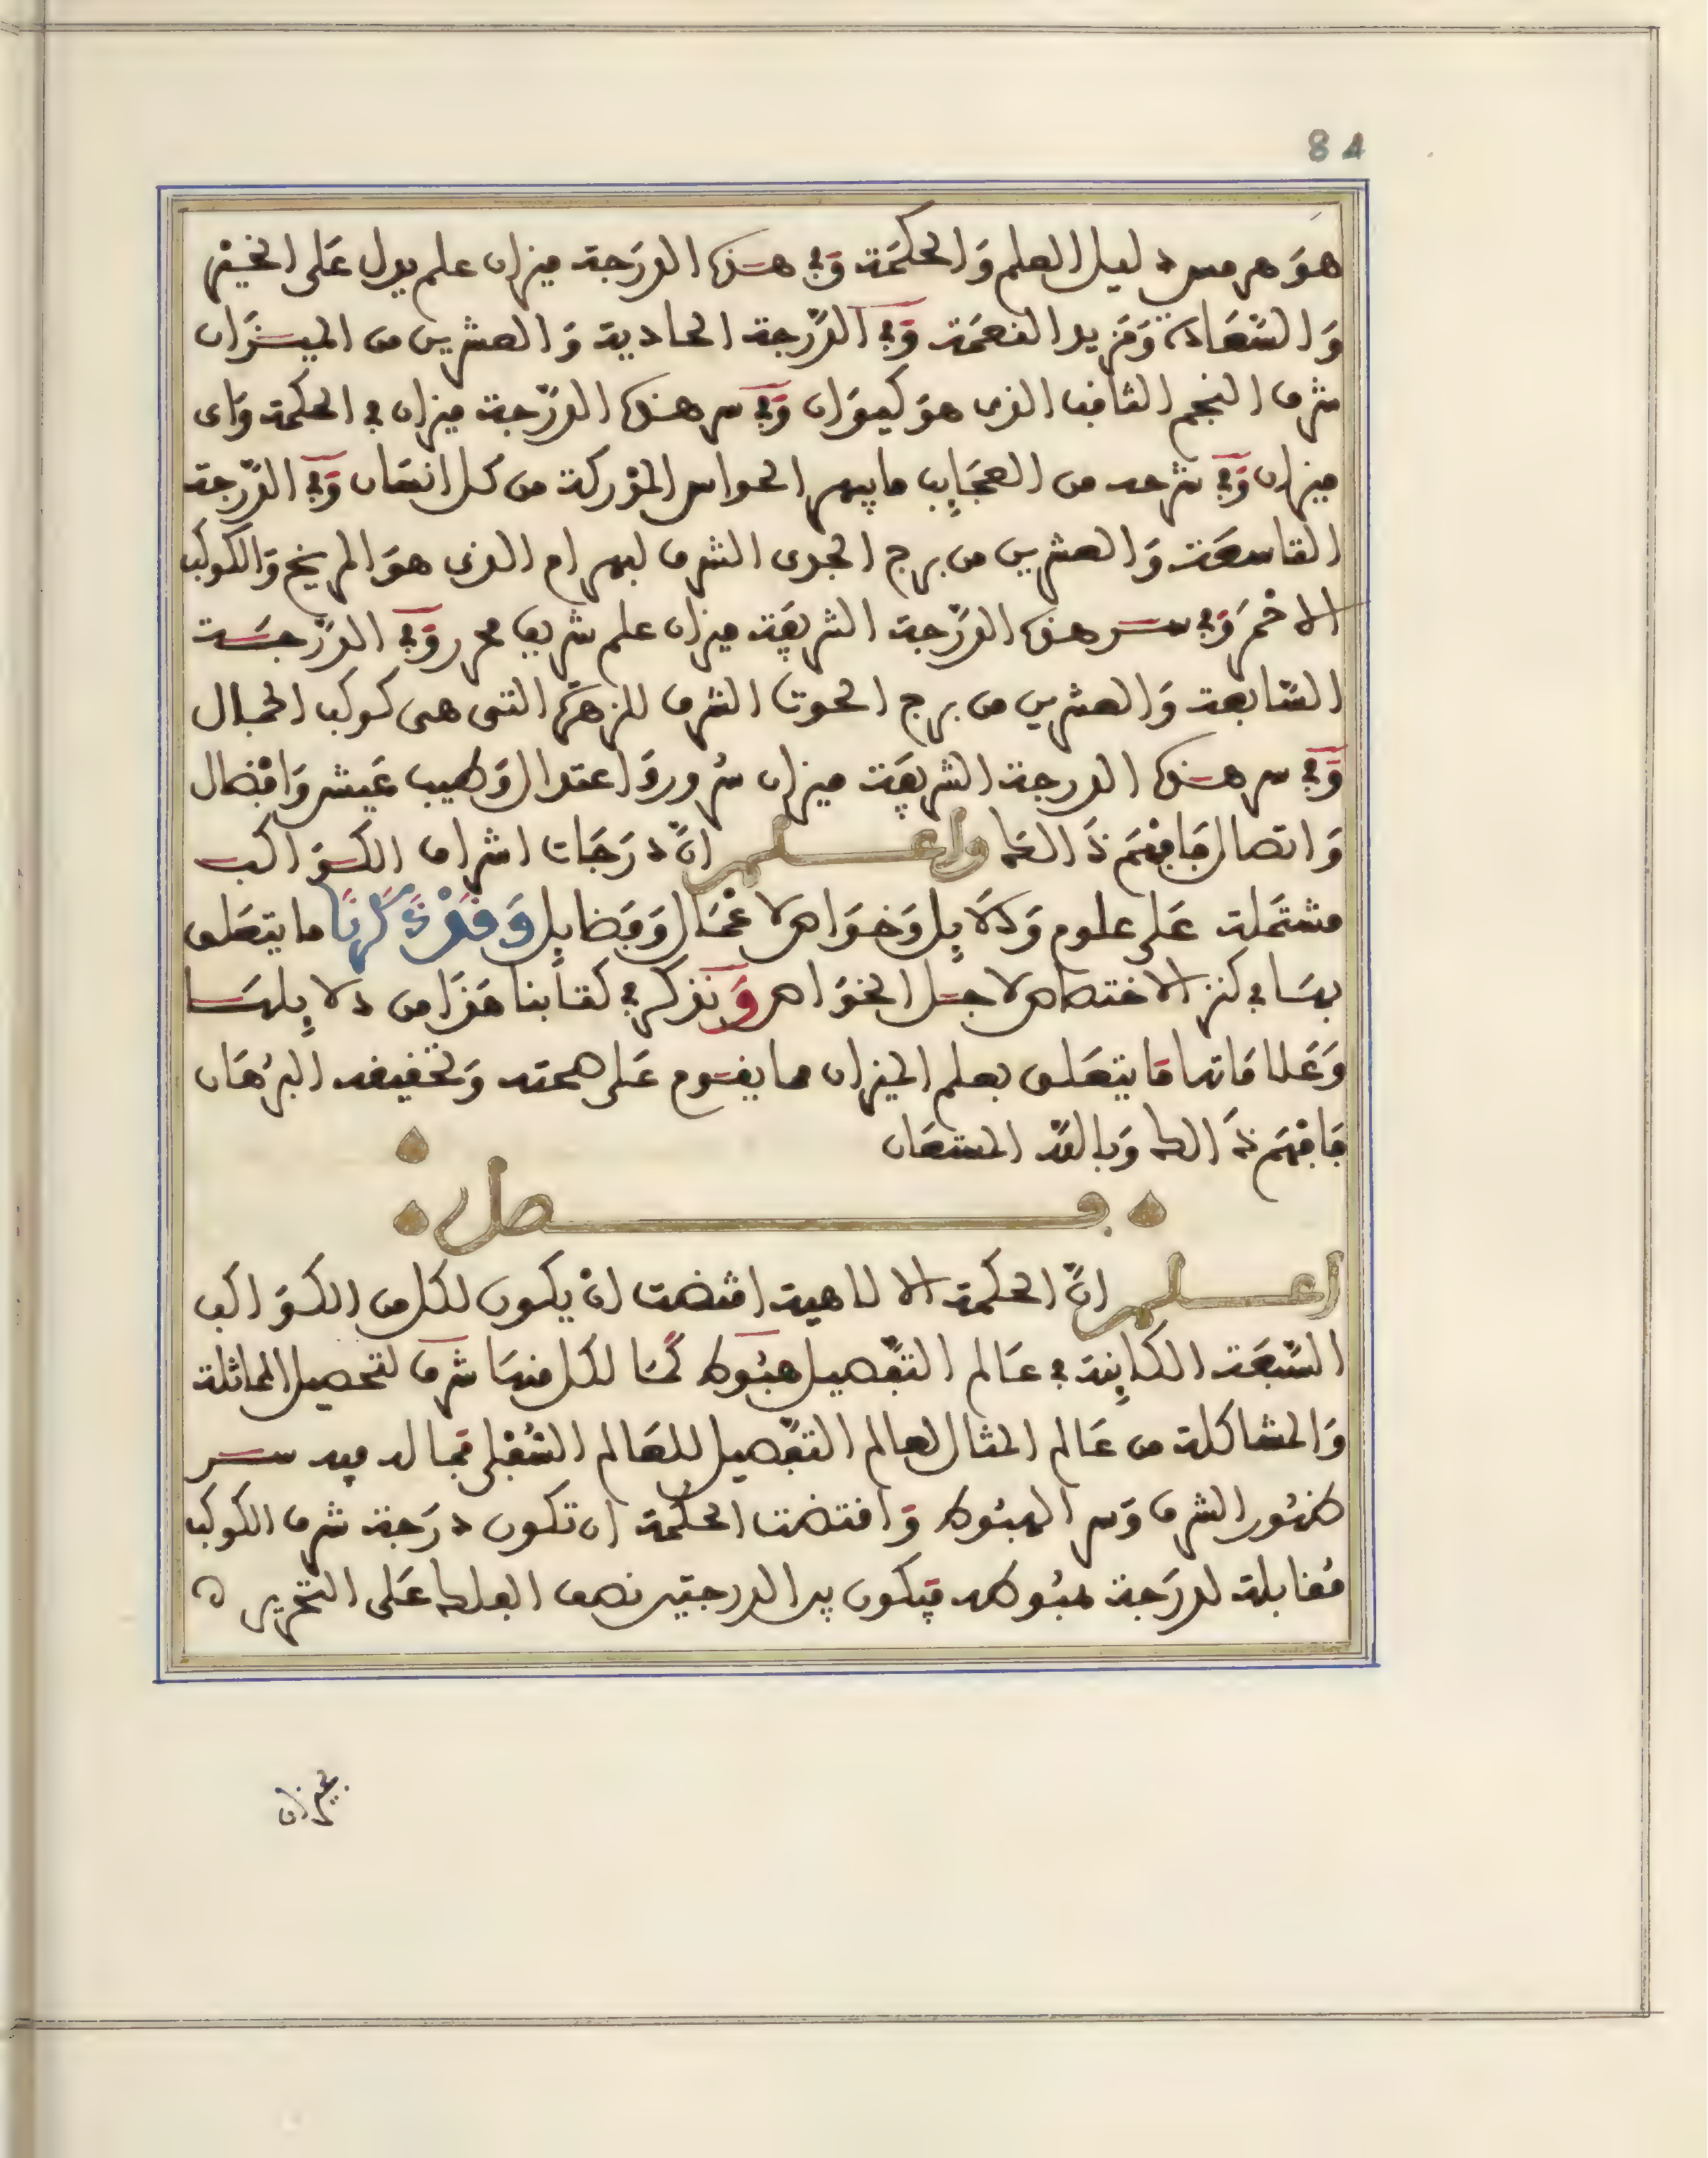 84
هو هرمس دليل العلم والحكمة وفي هذه الدرجة ميزان علم يدل على الخير
والسعادة ومزيد النعمة وفي الدرجة الحادية والعشرين من الميزان
شرف النجم الثاقب الذي هو كيوان وفي سر هذه الدرجة ميزان في الحكمة واى
ميزان وفي شرحه من العجايب ما يبهر الحواس المدركة من كل انسان وفي الدرجة
التاسعة والعشرين من برج الجدى الشرف لبهرام الذي هو المريخ والكوكب
الاحمر وفي سر هذه الدرجة الشريفة ميزان علم شريف محرر وفي الدرجة
السابعة والعشرين من برج الحوت الشرف للزهرة التى هى كوكب الجمال
وفي سر هذه الدرجة الشريفة ميزان سرور واعتدال وطيب عيش وافضال
واتصال فافهم ذالك واعلم ان درجات اشراف الكواكب
مشتملة على علوم ودلايل وخواص لاعمال وفضايل وقد ذكرنا ما يتعلق
بها في كنز الاختصاص لاجل الخواص ونذكر في كتابنا هذا من دلايلها
وعلاماتها ما يتعلق بعلم الميزان مما يقوم على صحته وتحقيقه البرهان
فافهم ذالك وبالله المستعان
فصل
اعلم ان الحكمة الالاهية اقتضت ان يكون لكل من الكواكب
السبعة الكاينة في عالم التفصيل هبوط كما لكل منها شرف لتحصيل المماثلة
والمشاكلة من عالم المثال لعالم التفصيل للعالم السفلى فيما له فيه سر
ظهور الشرف وسر الهبوط واقتضت الحكمة ان تكون درجة شرف الكوكب
مقابلة لدرجة هبوطه فيكون بين الدرجتين نصف الفلك على التحرير ه